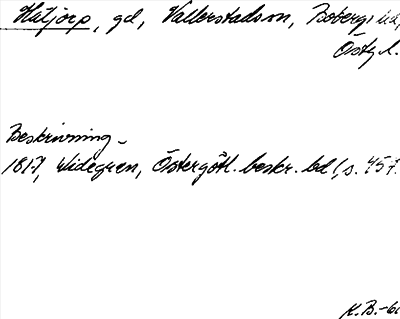 Hatjorp, gd, Vallerstads sn, Bobergs hd,
Östg. l.
Beskrivning -
1817, Widegren, Östergötl. beskr. bd 1, s. 457.
K.B.-60